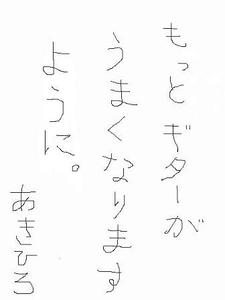 もっとギターが
うまくなります
ように。
あきひろ